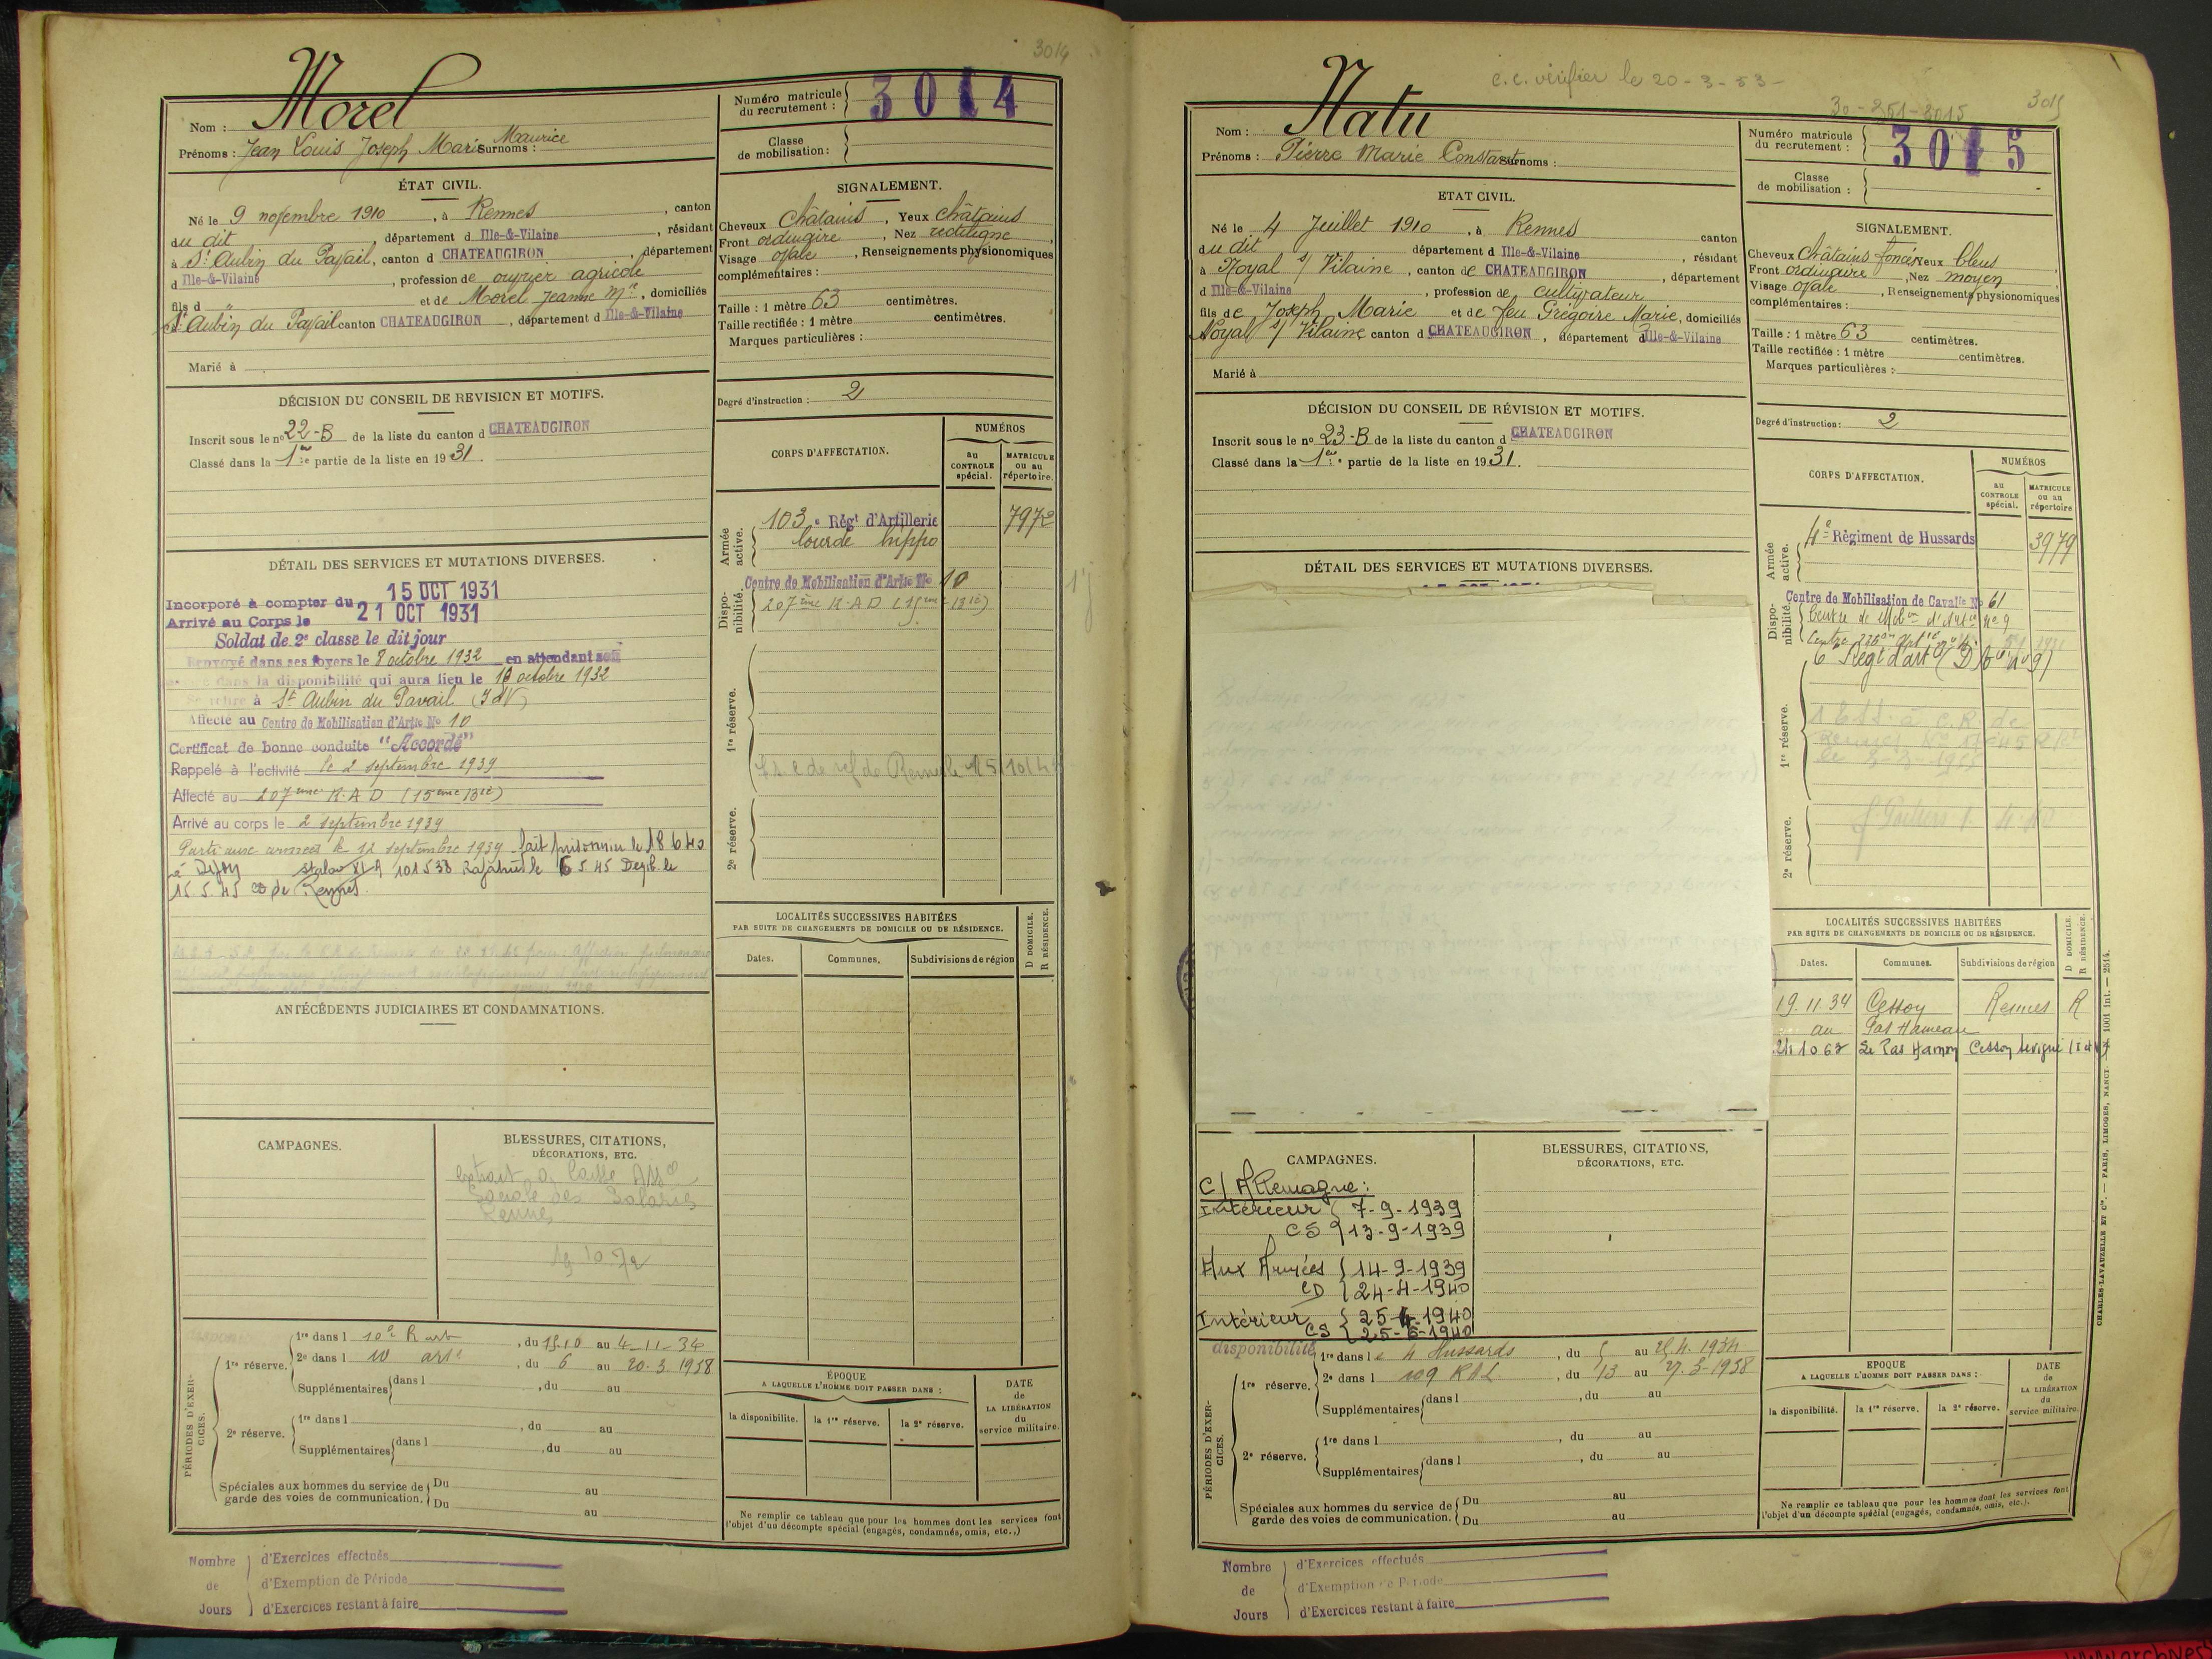 3014
Nom : Morel
Prénoms : Jean Louis Joseph Marie Surnoms : Maurice
Numéro matricule du recrutement : 3014
Classe de mobilisation :
ÉTAT CIVIL.
Né le 9 novembre 1910, à Rennes, canton
du dit département d Ille-&-Vilaine, résidant
à St Aubin du Pavail, canton d CHATEAUGIRON, département
d Ille-&-Vilaine, profession de ouvrier agricole
fils d " et de Morel Jeanne Mie, domiciliés
St Aubin du Pavail canton CHATEAUGIRON, département d Ille-&-Vilaine
Marié à
SIGNALEMENT.
Cheveux châtains, Yeux châtains
Front ordinaire, Nez rectiligne,
Visage ovale, Renseignements physionomiques
complémentaires :
Taille : 1 mètre 63 centimètres.
Taille rectifiée : 1 mètre centimètres.
Marques particulières :
Degré d'instruction : 2
DÉCISION DU CONSEIL DE REVISION ET MOTIFS.
Inscrit sous le no 22-B de la liste du canton d CHATEAUGIRON
Classé dans la 1re partie de la liste en 1931.
CORPS D'AFFECTATION.
NUMÉROS
au CONTROLE spécial.
MATRICULE ou au répertoire.
Armée active.
103e Régt d'Artillerie 7972
lourde hippo
Disponibilité.
Centre de Mobilisation d'Artie No 10
207ème R.A.D (15ème Bie)
1re réserve.
2e réserve.
DÉTAIL DES SERVICES ET MUTATIONS DIVERSES.
Incorporé à compter du 15 OCT 1931
Arrivé au Corps le 21 OCT 1931
Soldat de 2e classe le dit jour
Renvoyé dans ses foyers le 8 octobre 1932 en attendant son
dans la disponibilité qui aura lieu le 10 octobre 1932
Se retire à St Aubin du Pavail (IdV)
Affecté au Centre de Mobilisation d'Artie No 10
Certificat de bonne conduite "Accordé"
Rappelé à l'activité le 2 septembre 1939
Affecté au 207ème R.A.D (15ème Bie)
Arrivé au corps le 2 septembre 1939
Parti aux armées le 12 septembre 1939 fait prisonnier le 18 6 40
à Dijon stalag XI A 101533 Rapatrié le 6 5 45 Demb. le
15.5.45 de Rennes.
ANTÉCÉDENTS JUDICIAIRES ET CONDAMNATIONS.
LOCALITÉS SUCCESSIVES HABITÉES
PAR SUITE DE CHANGEMENTS DE DOMICILE OU DE RÉSIDENCE.
Dates. Communes. Subdivisions de région D DOMICILE. R RÉSIDENCE.
CAMPAGNES.
BLESSURES, CITATIONS,
DÉCORATIONS, ETC.
extrait à Caisse Assce
Sociale des Salariés
Rennes
PÉRIODES D'EXERCICES.
1re réserve.
1re dans l 10e R art, du 15.10 au 4-11-34
2e dans l 10 arie, du 6 au 20.3.1938
Supplémentaires dans l, du au
2e réserve.
1re dans l, du au
Supplémentaires dans l, du au
Spéciales aux hommes du service de garde des voies de communication. Du au
Du au
ÉPOQUE
A LAQUELLE L'HOMME DOIT PASSER DANS :
la disponibilite. la 1re réserve. la 2e réserve.
DATE de LA LIBÉRATION du service militaire.
Ne remplir ce tableau que pour les hommes dont les services font
l'objet d'un décompte spécial (engagés, condamnés, omis, etc.,)
Nombre de Jours
d'Exercices effectués
d'Exemption de Période
d'Exercices restant à faire
c.c. vérifier le 20-3-53-
3015
Nom : Natu
Prénoms : Pierre Marie Constant Surnoms :
Numéro matricule du recrutement : 3015
Classe de mobilisation :
ETAT CIVIL.
Né le 4 Juillet 1910, à Rennes canton
du dit département d Ille-&-Vilaine, résidant
à Noyal s/ Vilaine, canton de CHATEAUGIRON, département
d Ille-&-Vilaine, profession de cultivateur
fils de Joseph Marie et de feu Grégoire Marie, domiciliés
Noyal s/ Vilaine canton d CHATEAUGIRON, département d Ille-&-Vilaine
Marié à
SIGNALEMENT.
Cheveux châtains foncés Yeux bleus
Front ordinaire, Nez moyen
Visage ovale, Renseignements physionomiques
complémentaires :
Taille : 1 mètre 63 centimètres.
Taille rectifiée : 1 mètre centimètres.
Marques particulières :
Degré d'instruction : 2
DÉCISION DU CONSEIL DE RÉVISION ET MOTIFS.
Inscrit sous le no 23-B de la liste du canton d CHATEAUGIRON
Classé dans la 1re partie de la liste en 1931.
DÉTAIL DES SERVICES ET MUTATIONS DIVERSES.
CORPS D'AFFECTATION.
NUMÉROS
au CONTROLE spécial.
MATRICULE ou au répertoire
Armée active.
4e Régiment de Hussards 3979
Disponibilité.
Centre de Mobilisation de Cavalie No 61
Centre de Mobon d'Artie no 9
6e Régt d'art
1re réserve.
2e réserve.
LOCALITÉS SUCCESSIVES HABITÉES
PAR SUITE DE CHANGEMENTS DE DOMICILE OU DE RÉSIDENCE.
Dates. Communes. Subdivisions de région D DOMICILE. R RÉSIDENCE.
19.11.34 Cesson Rennes R
au Pas Hameau
Cesson Sévigné
CAMPAGNES.
C/ Allemagne :
Intérieur 7-9-1939
CS 13-9-1939
Aux Armées 14-9-1939
CD 24-4-1940
Intérieur 25-4-1940
CS 25-6-1940
BLESSURES, CITATIONS,
DÉCORATIONS, ETC.
PÉRIODES D'EXERCICES.
disponibilité
1re réserve.
1re dans le 4 Hussards, du 5 au 25.4.1934
2e dans l 109 RAL, du 13 au 27.3-1938
Supplémentaires dans l, du au
2e réserve.
1re dans l, du au
Supplémentaires dans l, du au
Spéciales aux hommes du service de garde des voies de communication. Du au
Du au
EPOQUE
A LAQUELLE L'HOMME DOIT PASSER DANS :
la disponibilité. la 1re réserve. la 2e réserve.
DATE de LA LIBÉRATION du service militaire.
Ne remplir ce tableau que pour les hommes dont les services font
l'objet d'un décompte spécial (engagés, condamnés, omis, etc.).
CHARLES-LAVAUZELLE ET Cie. — PARIS, LIMOGES, NANCY — 1001 int. — 2514.
Nombre de Jours
d'Exercices effectués
d'Exemption de Période
d'Exercices restant à faire